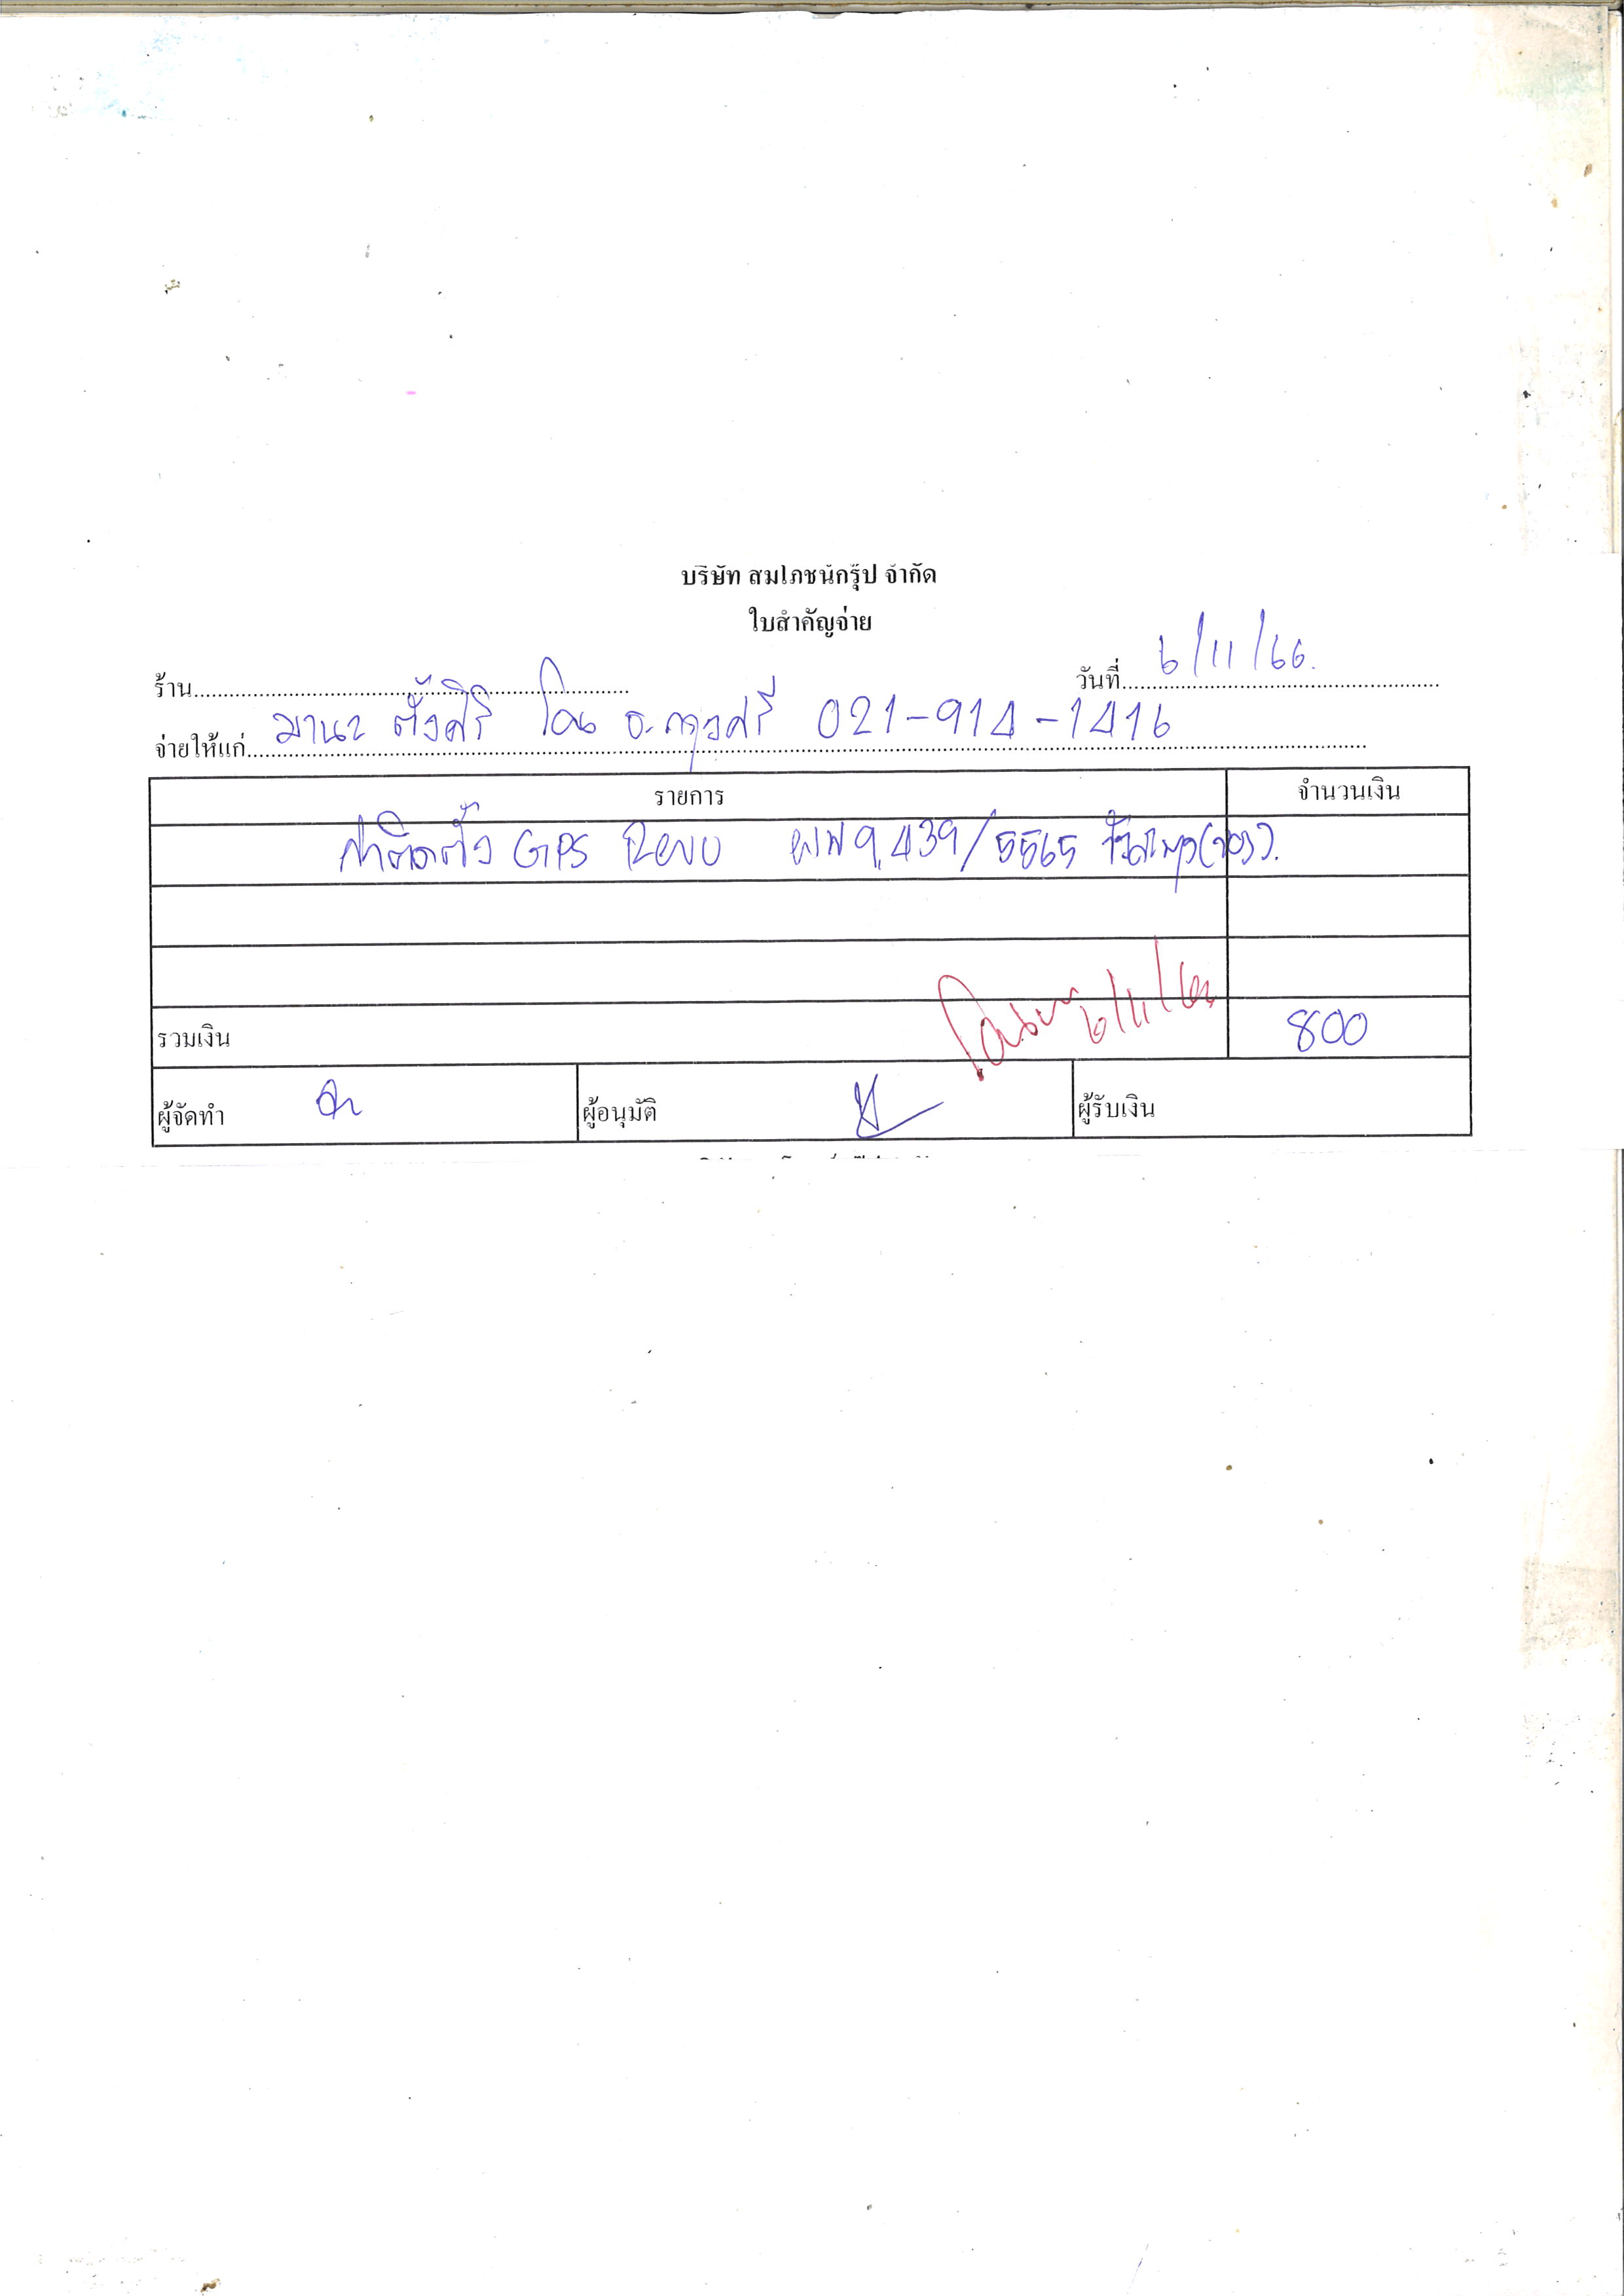 บริษัท สมโภชน์กรุ๊ป จำกัด
ใบสำคัญจ่าย
ร้าน
วันที่ 6/11/66.
จ่ายให้แก่ มานะ ตั้งศิริ โอน ธ.กรุงศรี 021-914-1416
รายการ จำนวนเงิน
ค่าติดตั้ง GPS Revo 439/5565
รวมเงิน 800
ผู้จัดทำ ผู้อนุมัติ ผู้รับเงิน